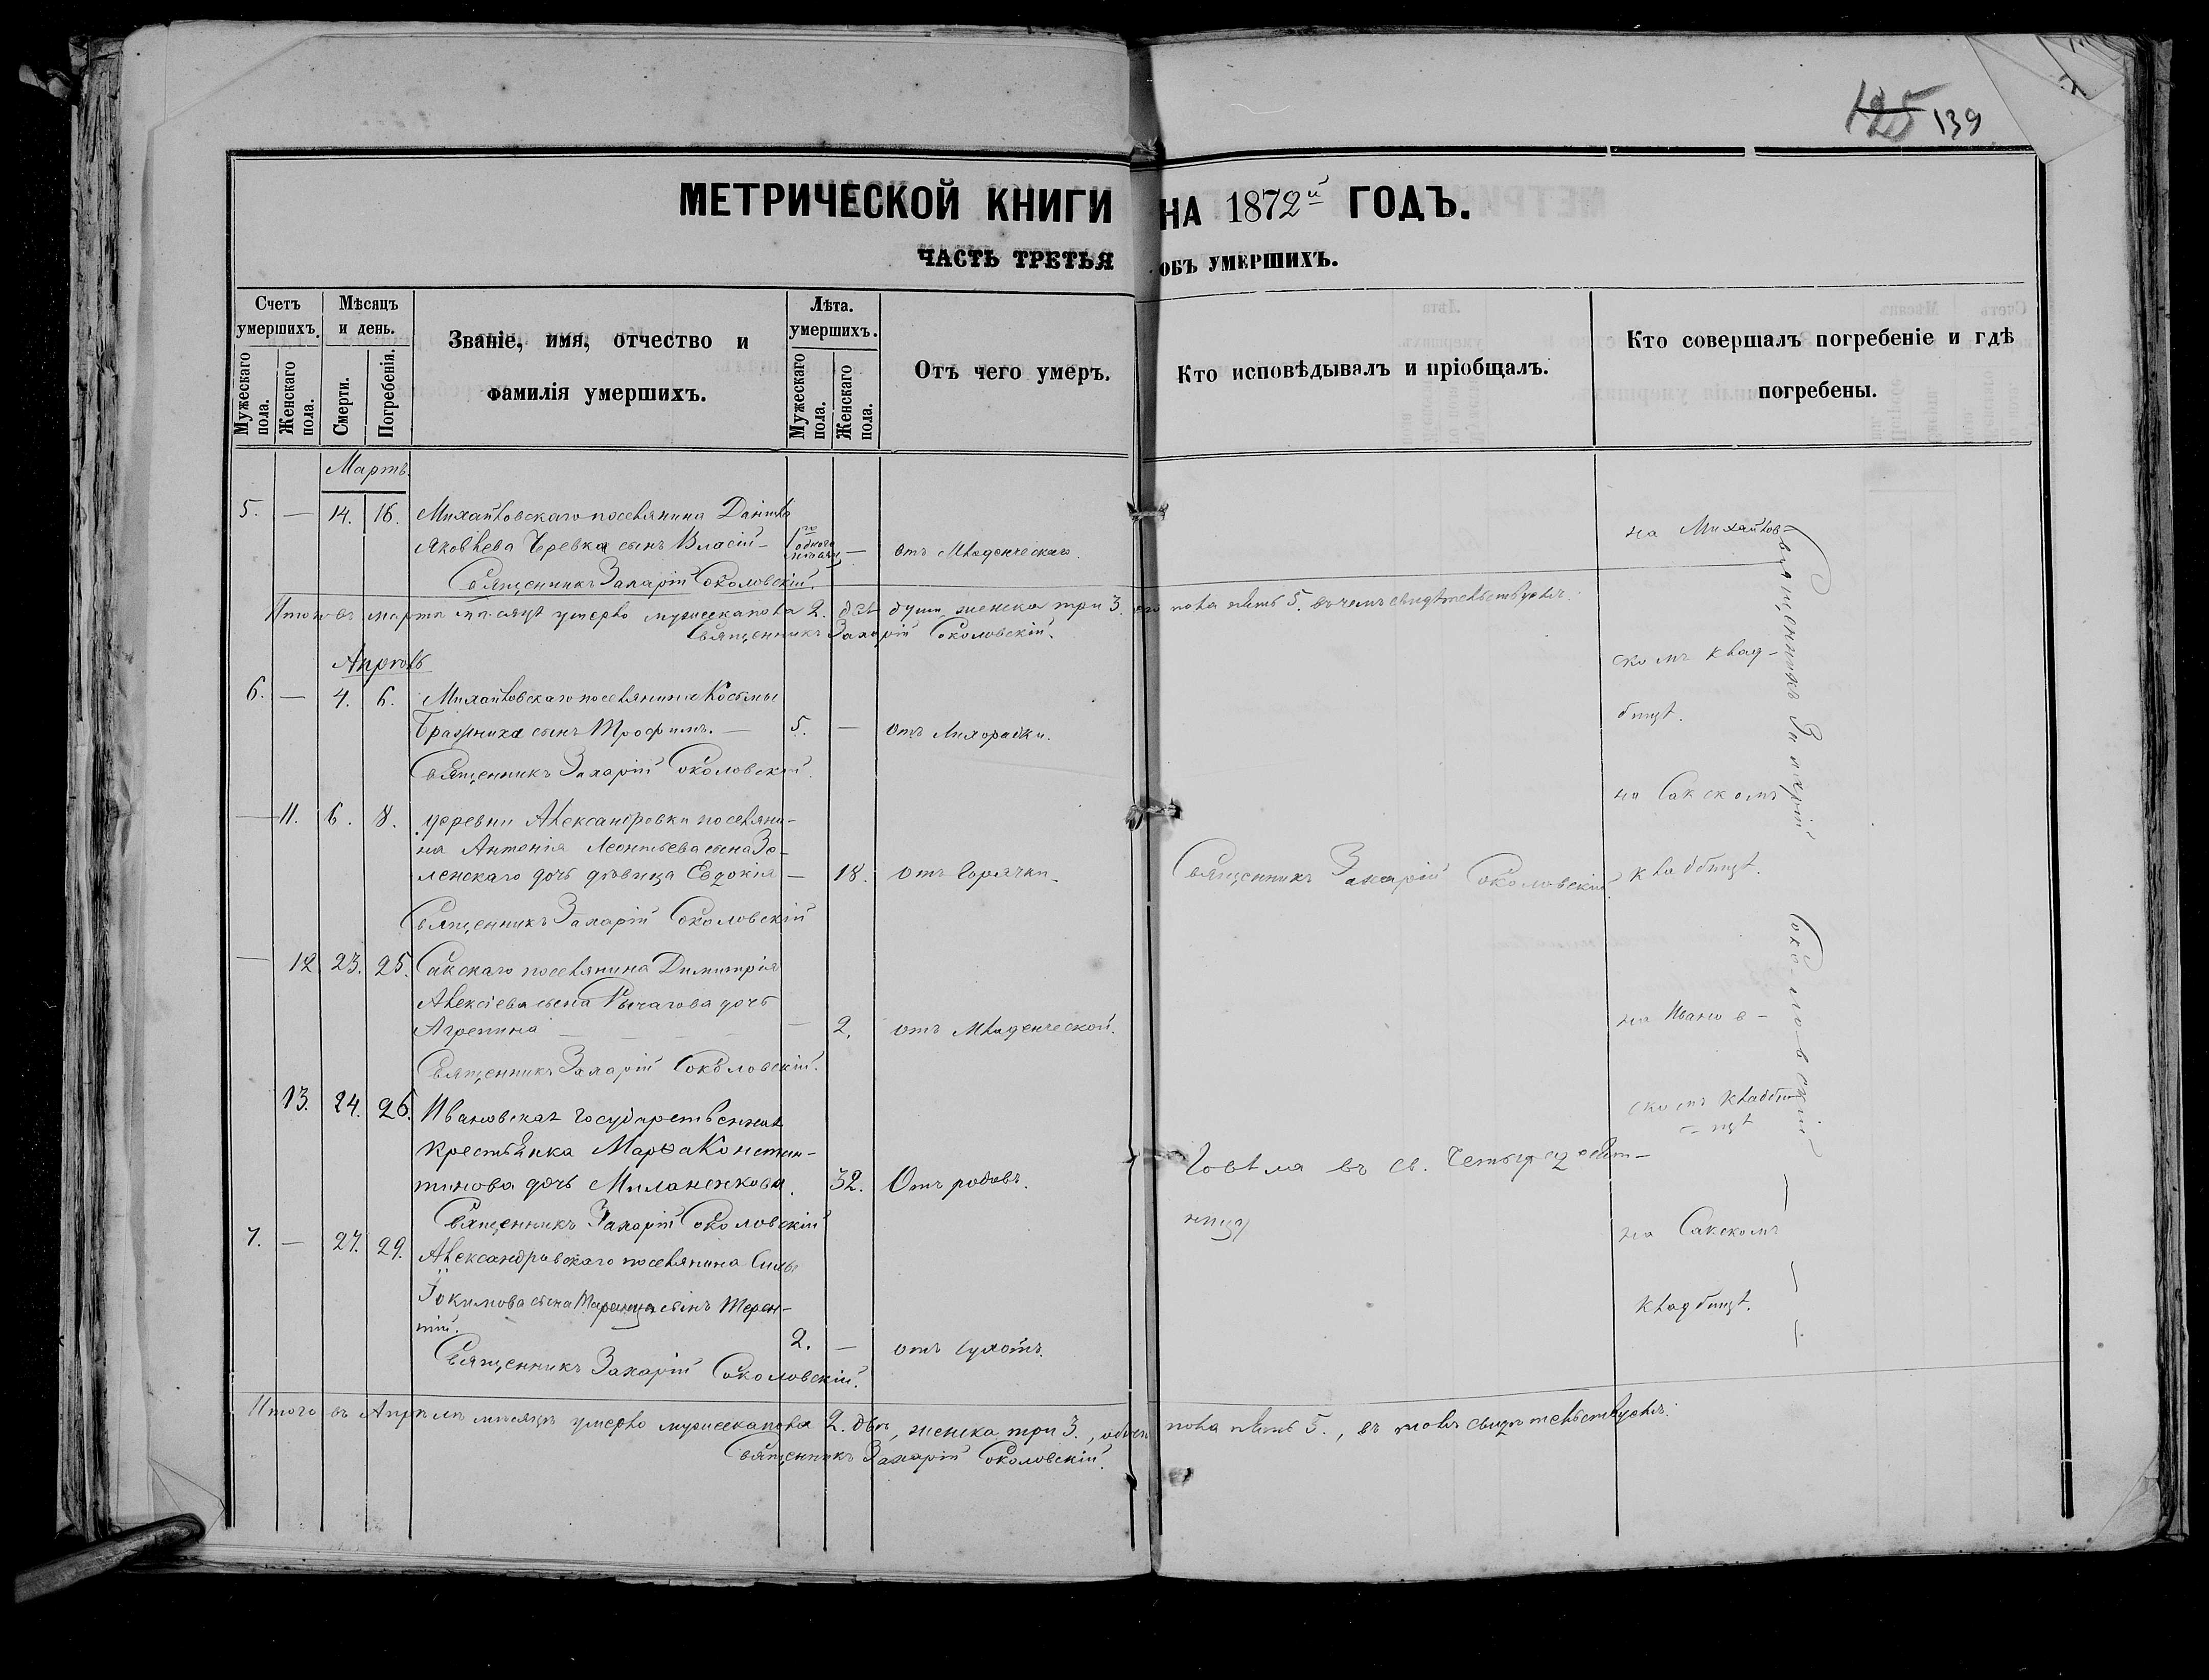 125 139
МЕТРИЧЕСКОЙ КНИГИ НА 1872й ГОДЪ.
ЧАСТЬ ТРЕТЬЯ ОБЪ УМЕРШИХЪ.
Счетъ умершихъ.
Мужескаго пола.
Женскаго пола.
Мѣсяцъ и день.
Смерти.
Погребенія.
Званіе, имя, отчество и
фамилія умершихъ.
Лѣта. умершихъ.
Мужескаго пола.
Женскаго пола.
Отъ чего умеръ.
Кто исповѣдывалъ и пріобщалъ.
Кто совершалъ погребеніе и гдѣ
погребены.
Мартъ
5. — 14. 16. Михайловскаго поселянина Даніила
Яковлева Черевка сынъ Власій — одного — отъ Младенческаго.
Священникъ Захарій Соколовскій
Итого въ мартѣ мѣсяцѣ умерло мужеска пола 2. двѣ души, женска три 3. пола пять 5. въ чемъ свидѣтельствуемъ.
Священникъ Захарій Соколовскій.
Апрѣль
6. — 4. 6. Михайловскаго поселянина Космы
Бражника сынъ Трофимъ. — 5. — отъ Лихорадки.
Священникъ Захарій Соколовскій.
— 11. 6. 8. деревни Александровки поселяни-
на Антонія Леонтьева сына Зе-
ленскаго дочь дѣвица Евдокія — 18. отъ Горячки
Священникъ Захарій Соколовскій
Священникъ Захарій Соколовскій
— 12 23. 25. Сакскаго поселянина Димитрія
Алексіева сына Рычагова дочь
Агрепина — 2. отъ Младенческой.
Священникъ Захарій Соколовскій.
13. 24. 26. Ивановская государственная
крестьянка Марѳа Констан-
тинова дочь Миланенкова. 32. Отъ родовъ.
Говѣла въ св. Четыредесят-
ницу
Священникъ Захарій Соколовскій
7. — 27. 29. Александровскаго поселянина Силы
Іокимова сына сынъ Терен-
тій. 2. — отъ Сухотъ.
Священникъ Захарій Соколовскій.
Итого въ Апрѣлѣ мѣсяцѣ умерло мужеска пола 2. двѣ, женска три 3., обоего пола пять 5., въ томъ свидѣтельствуемъ.
Священникъ Захарій Соколовскій.
на Михайлов-
скомъ клад-
бищѣ.
на Сакскомъ
кладбищѣ.
на Иванов-
скомъ кладби-
щѣ
на Сакскомъ
кладбищѣ.
Священникъ Захарій Соколовскій